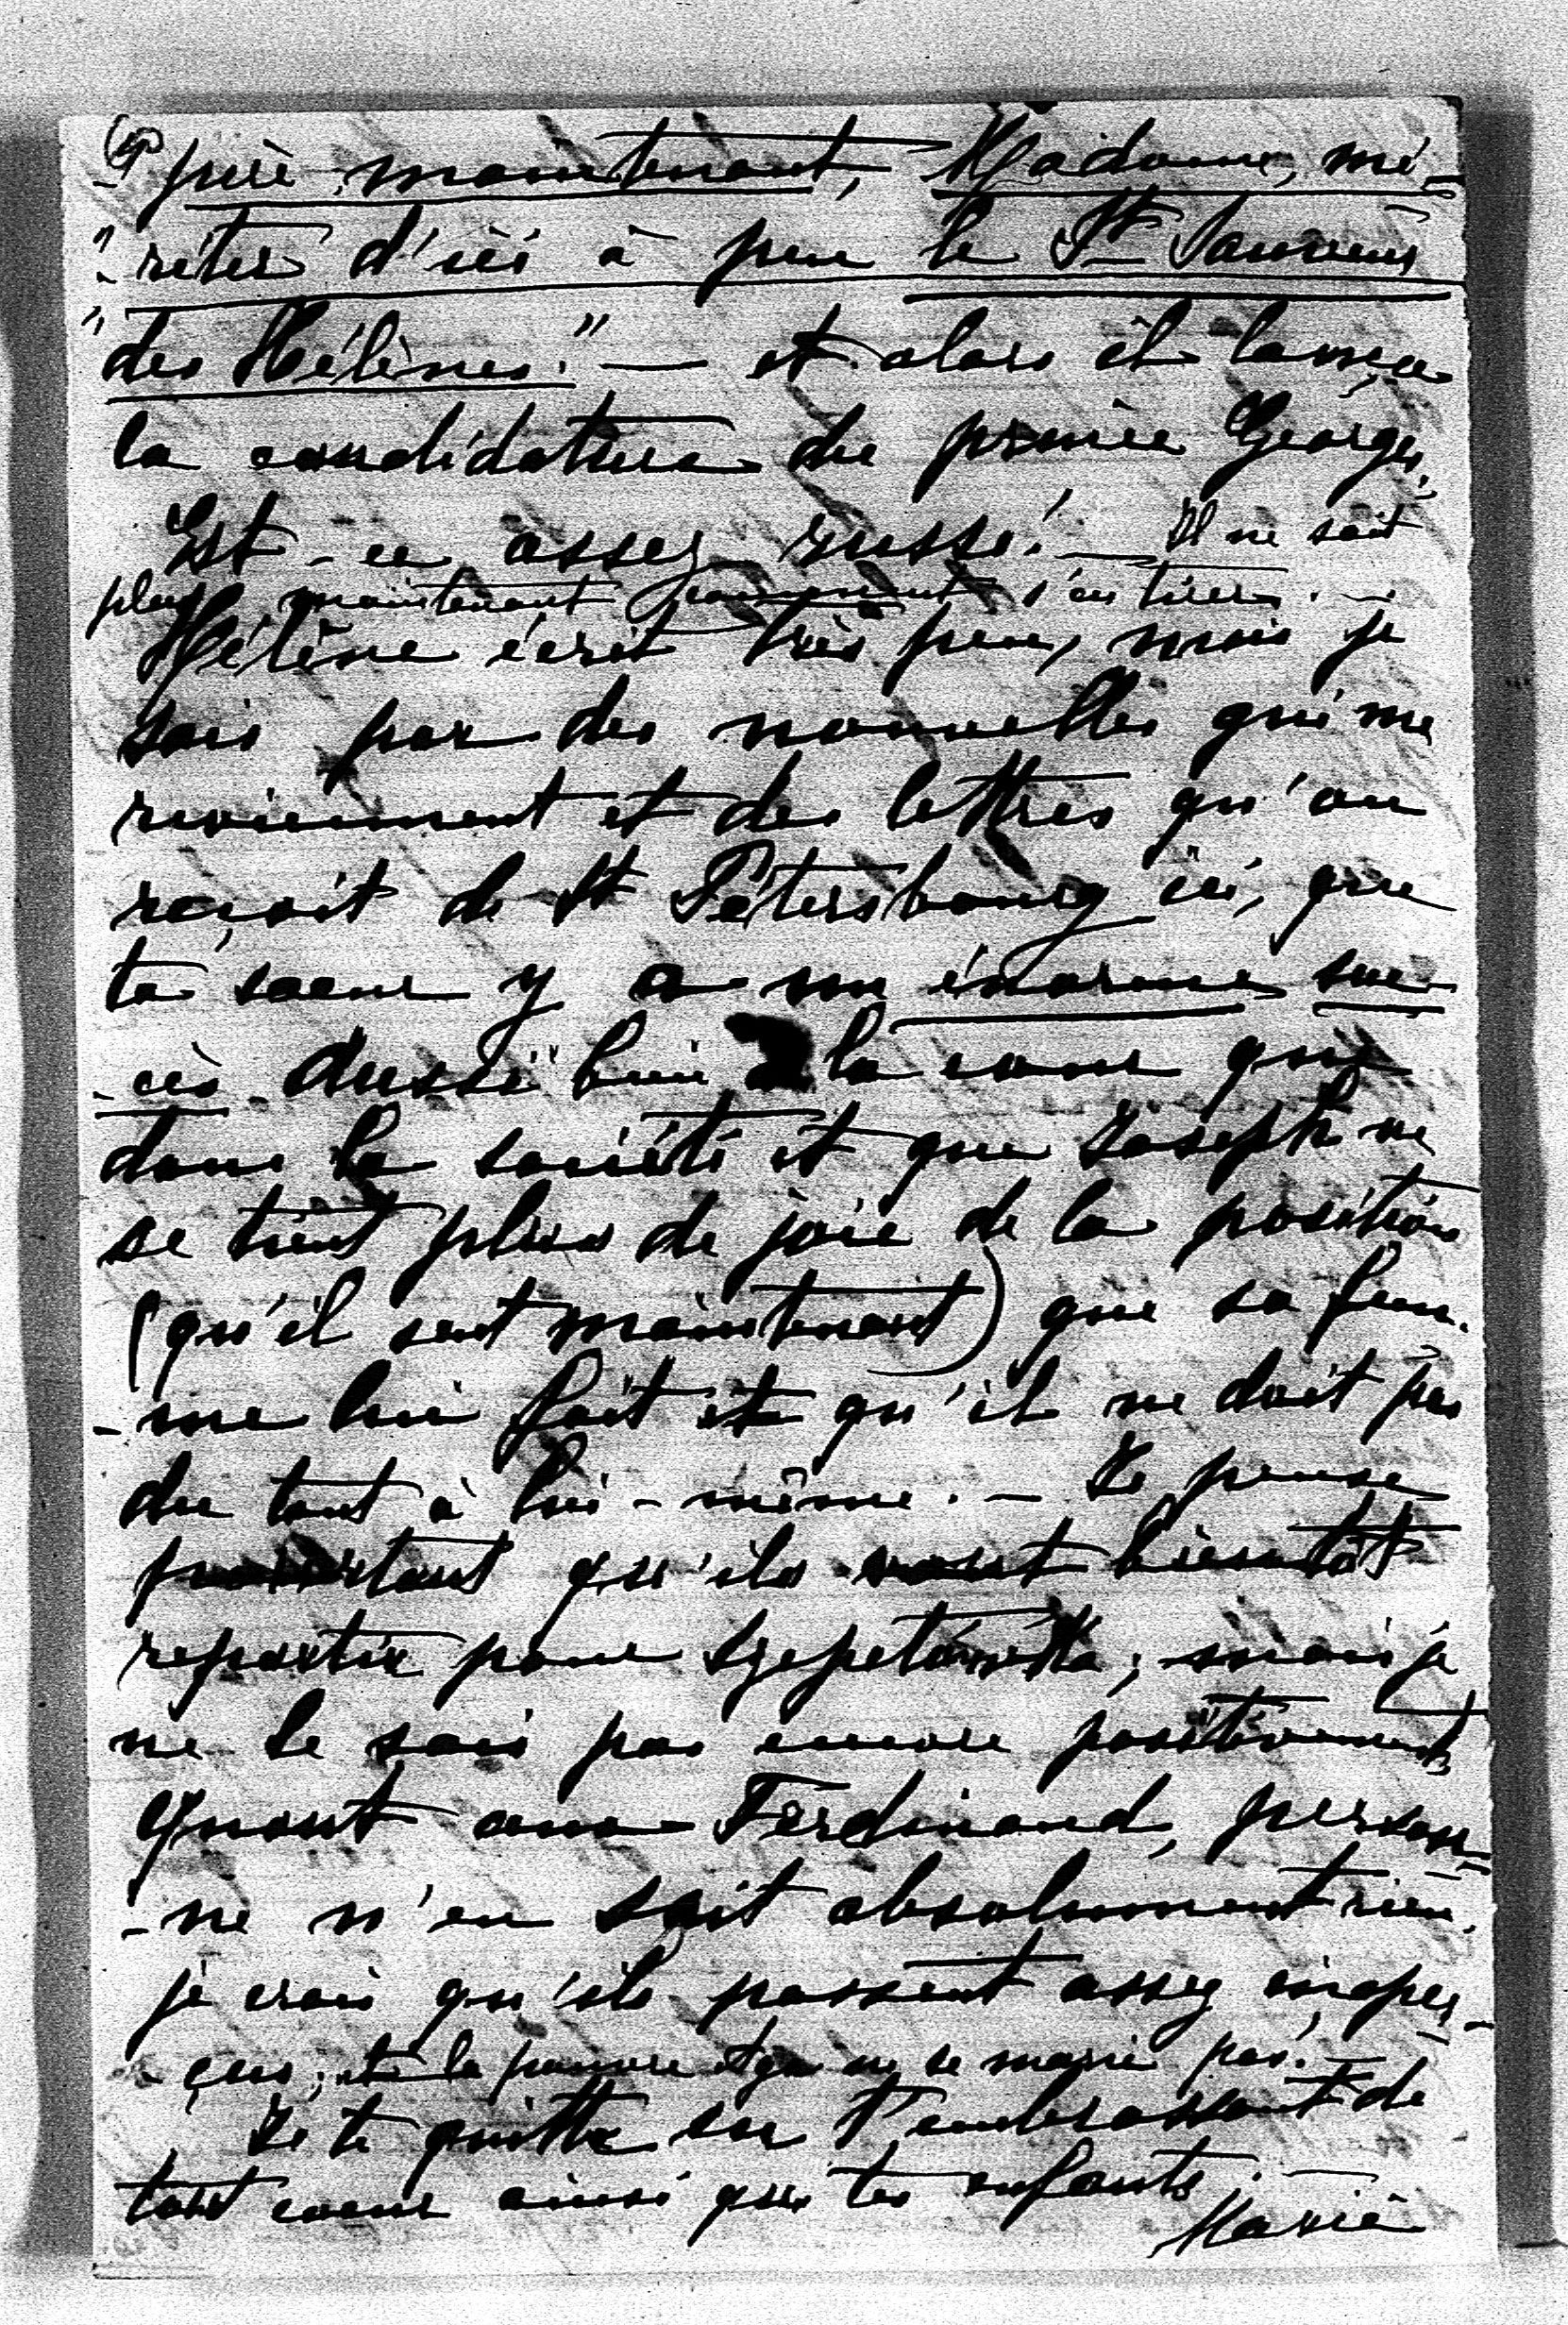 père maintenant, Madame, mé-
"riter d'ici à peu le St Sauveur
"des Hélènes." — et alors il lança
la candidature du prince Georges.
Est-ce assez russe! — Il ne sait
plus maintenant comment s'en tirer. —
Hélène écrit très peu, mais je
sais par des nouvelles qui me
reviennent et des lettres qu'on
reçoit de St Pétersbourg ici, que
ta soeur y a un énorme suc-
-cès aussi bien à la cour que
dans la société et que Joseph ne
se tient plus de joie de la position
(qu'il sent maintenant) que sa fem-
-me lui fait et qu'il ne doit pas
du tout à lui-même. — Je pense
pourtant qu'ils vont bientôt
repartir pour Szepetówka; mais je
ne le sais pas encore positivement
Quant aux Ferdinand, person-
-ne n'en sait absolument rien.
je crois qu'ils passent assez inaper-
-çus; et la pauvre Olga ne se marie pas. —
Je te quitte en t'embrassant de
tout coeur ainsi que tes enfants. —
Marie